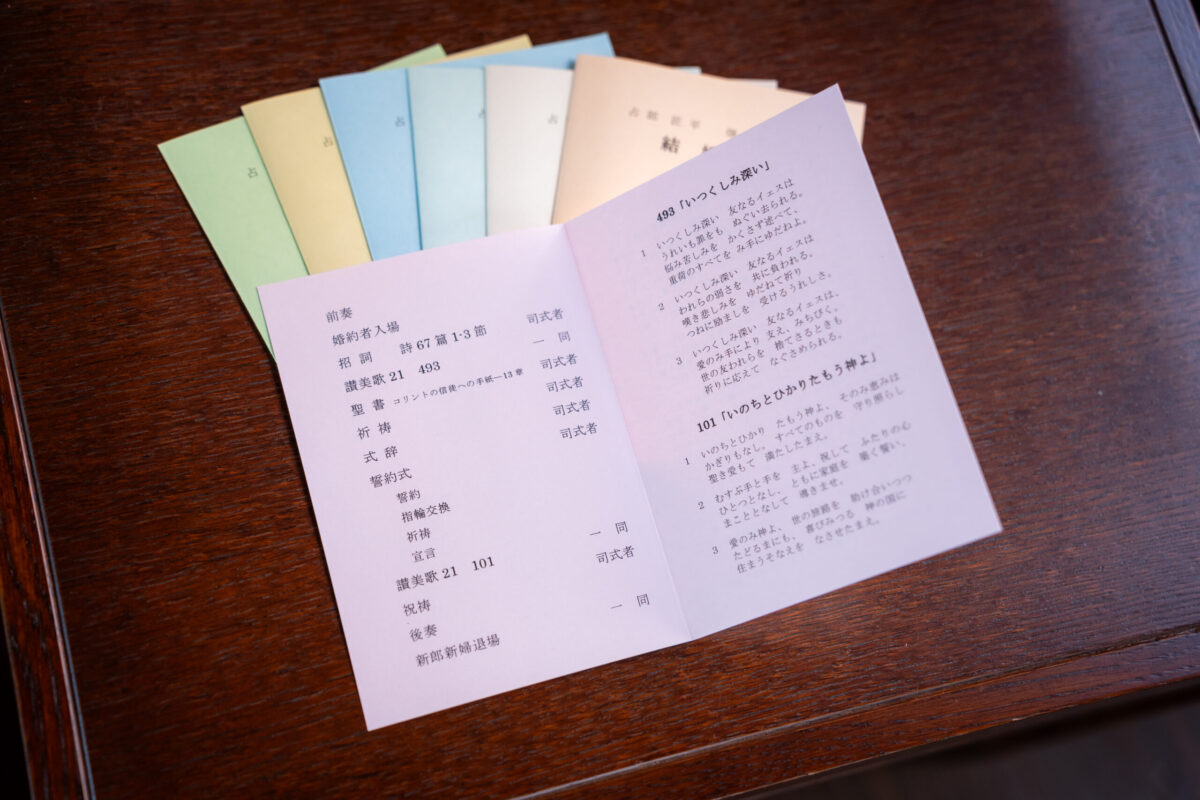 占
占
占
占
占
結
前奏
婚約者入場
招 詞 詩 67 篇 1-3 節 司式者
讃美歌 21 493 一 同
聖 書 コリントの信徒への手紙一13 章 司式者
祈 祷 司式者
式 辞 司式者
誓約式 司式者
誓約
指輪交換
祈祷
宣言
讃美歌 21 101 一 同
祝祷 司式者
後奏
新郎新婦退場 一 同
493「いつくしみ深い」
1 いつくしみ深い 友なるイエスは
うれいも罪をも ぬぐい去られる。
悩み苦しみを かくさず述べて、
重荷のすべてを み手にゆだねよ。
2 いつくしみ深い 友なるイエスは
われらの弱さを 共に負われる。
嘆き悲しみを ゆだねて祈り
つねに励ましを 受けるうれしさ。
3 いつくしみ深い 友なるイエスは、
愛のみ手により 支え、みちびく。
世の友われらを 捨てさるときも
祈りに応えて なぐさめられる。
101「いのちとひかりたもう神よ」
1 いのちとひかり たもう神よ、そのみ恵みは
かぎりもなし。すべてのものを 守り照らし
聖き愛もて 満たしたまえ。
2 むすぶ手と手を 主よ、祝して ふたりの心
ひとつとなし、ともに家庭を 築く誓い、
まこととなして 導きませ。
3 愛のみ神よ、世の旅路を 助け合いつつ
たどるまにも、喜びみつる 神の国に
住まうそなえを なさせたまえ。